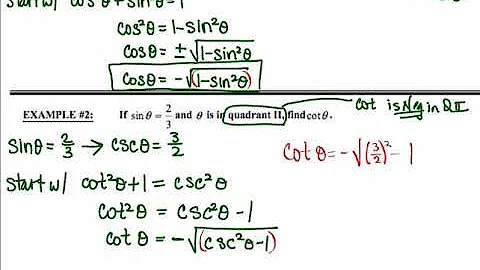 Start w/ cos²θ + sin²θ = 1
cos²θ = 1 - sin²θ
cosθ = ±√1-sin²θ
cosθ = -√(1-sin²θ)
cot is Neg in Q II
EXAMPLE #2: If sin θ = 2/3 and θ is in quadrant II, find cot θ.
sinθ = 2/3 → cscθ = 3/2
cotθ = -√(3/2)² - 1
start w/ cot²θ + 1 = csc²θ
cot²θ = csc²θ - 1
cot θ = -√(csc²θ-1)